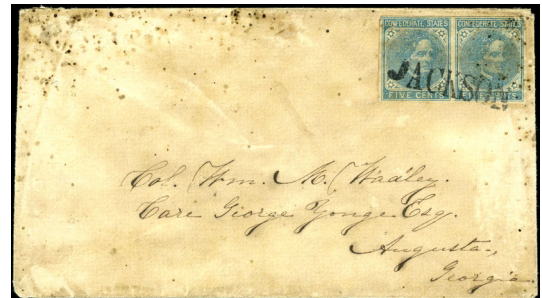 CONFEDERATE STATES CONFEDERATE STATES
JACKSON
FIVE CENTS FIVE CENTS
Col. Wm. M. Wadley.
Care George Yonge Esq.
Augusta,
Georgia